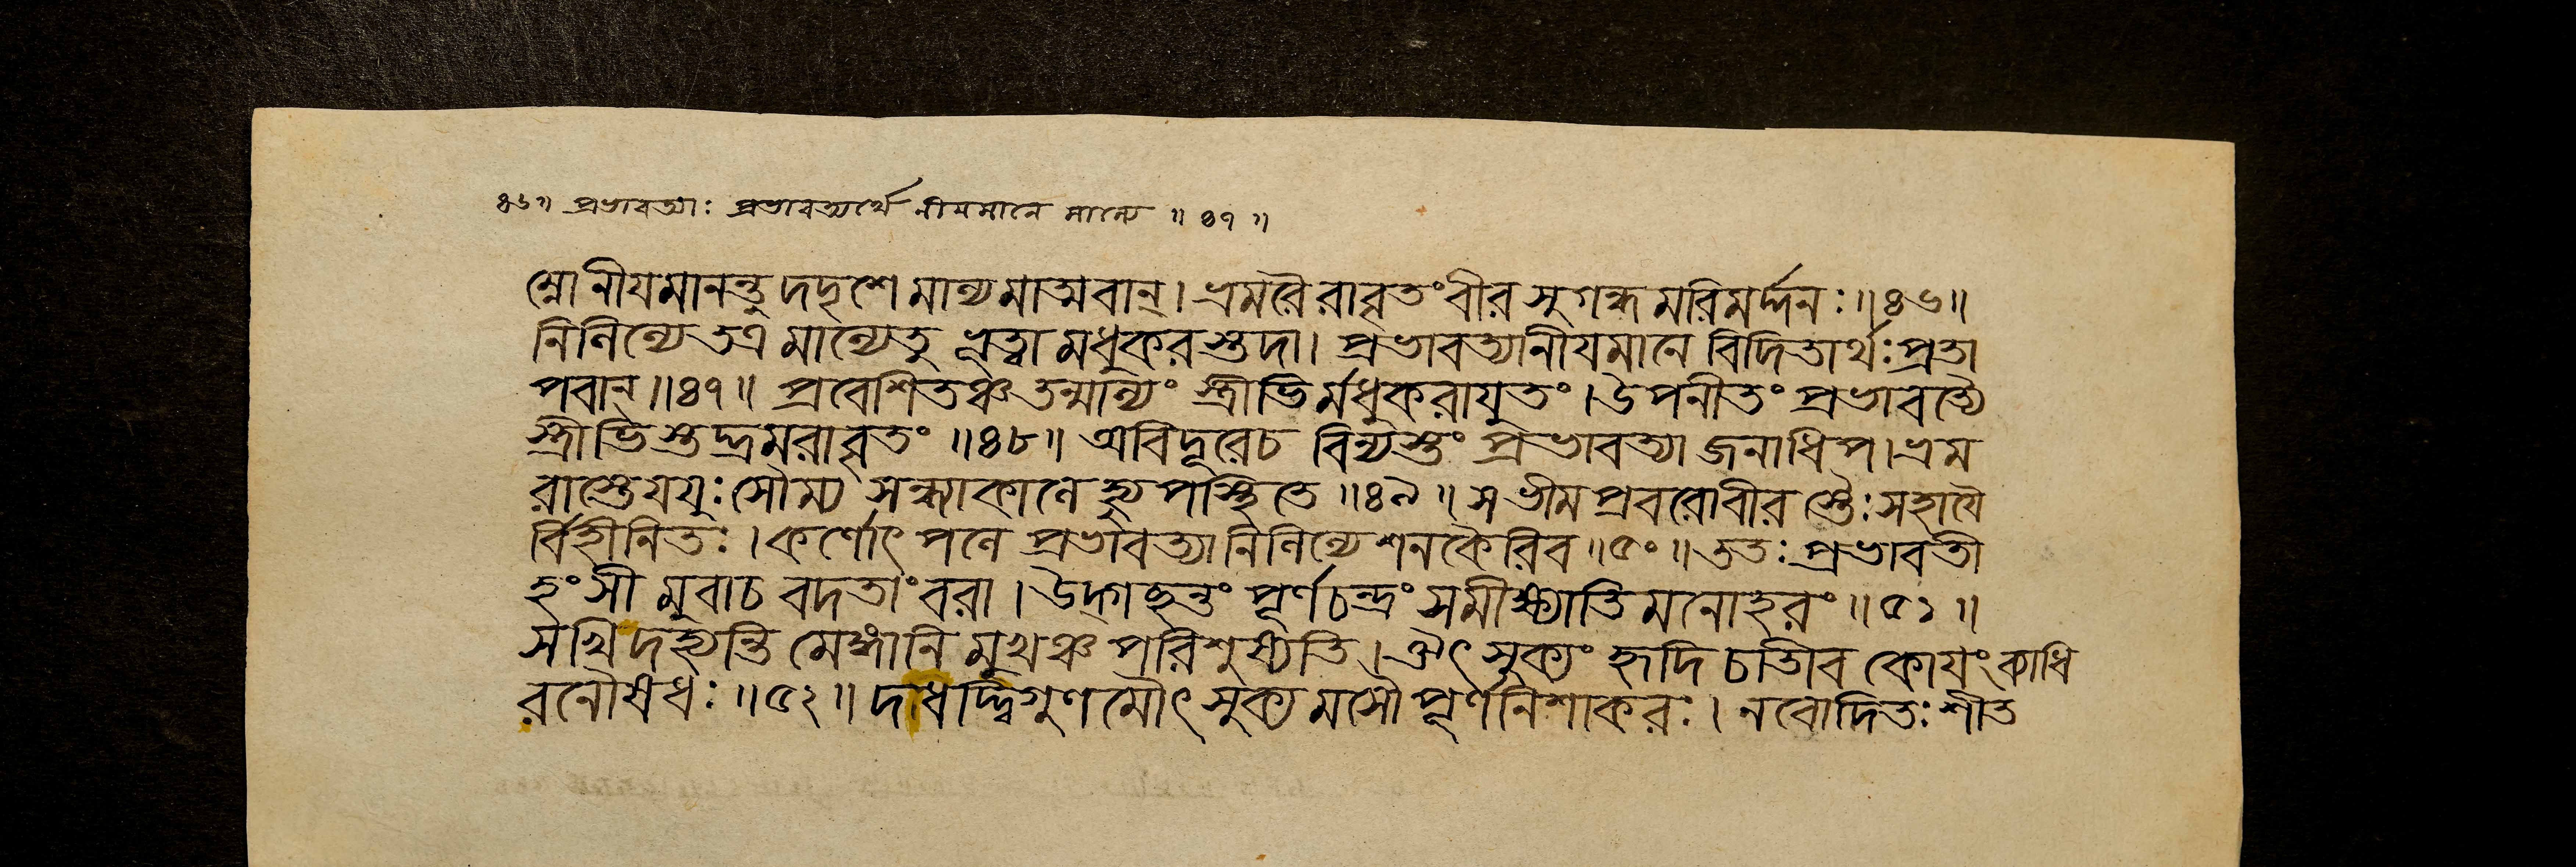 ৪৬॥ প্রভাবত্যাঃ প্রভাবত্যর্থে নীয়মানে মাল্যে ॥ ৪৭ ॥
ম্নো নীযমানন্তু দদৃশে মাল্যমাত্মবান্। ভ্রমরৈরাবৃতং বীর সুগন্ধমরিমর্দ্দনঃ ॥ ৪৬॥
নিলিল্যে তত্র মাল্যেতু ভূত্বা মধুকরস্তদা। প্রভাবত্যানীযমানে বিদিতার্থঃ প্রতা
পবান্ ॥ ৪৭॥ প্রবেশিতঞ্চ তন্মাল্যং স্ত্রীভির্মধুকরাযুতং। উপনীতং প্রভাবত্যৈ
স্ত্রীভিস্তদ্ভ্রমরাবৃতং ॥ ৪৮॥ অবিদূরেচ বিন্যস্তং প্রভাবত্যা জনাধিপ। ভ্রম
রাস্তেযযুঃ সৌম্য সন্ধ্যাকালে হ্যুপস্থিতে ॥ ৪৯ ॥ স ভীমপ্রবরোবীরস্তৈঃ সহাযৈ
র্বিহীনিতঃ। কর্ণোৎপলে প্রভাবত্যা নিলিল্যে শনকৈরিব ॥ ৫০ ॥ ততঃ প্রভাবতী
হংসী মুবাচ বদতাংবরা। উদ্গচ্ছন্তং পূর্ণচন্দ্রং সমীক্ষ্যাতিমনোহরং ॥ ৫১ ॥
সখি দহ্যন্তি মেঙ্গানি মুখঞ্চ পরিশুষ্যতি। ঔৎসুক্যং হৃদি চাতীব কোযং ব্যাধি
রনৌষধঃ ॥ ৫২ ॥ দাধদ্দ্বিগুণমৌৎসুক্যমসৌ পূর্ণনিশাকরঃ। নবোদিতঃ শীত